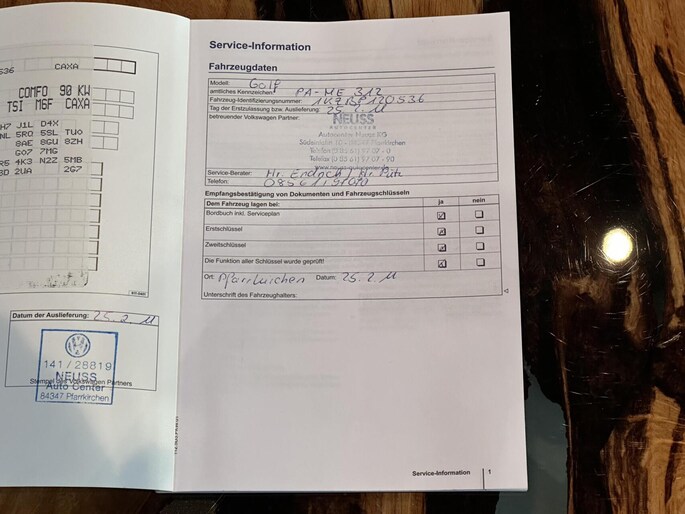 536 CAXA
COMFO 90 KW
TSI M6F CAXA
H7 J1L D4X
NL 5RO 5SL TUO
8AE 8GU 9ZH
GO7 7MG
R5 4K3 N2Z 5MB
BD 2UA 2G7
Datum der Auslieferung: 25.2.11
141/28819
NEUSS
Stempel des Volkswagen Partners
Auto Center
84347 Pfarrkirchen
Service-Information
Fahrzeugdaten
Modell: Golf
amtliches Kennzeichen: PA-ME 312
Fahrzeug-Identifizierungsnummer: 1KZBP120536
Tag der Erstzulassung bzw. Auslieferung: 25.2.11
betreuender Volkswagen Partner: NEUSS
AUTOCENTER
Pfarrkirchen
Telefon (0 85 61) 97 07 - 0
Telefax (0 85 61) 97 07 - 90
Service-Berater: Hr. Endrich / Hr.
Telefon: 08561/97070
Empfangsbestätigung von Dokumenten und Fahrzeugschlüsseln
Dem Fahrzeug lagen bei: ja nein
Bordbuch inkl. Serviceplan
Erstschlüssel
Zweitschlüssel
Die Funktion aller Schlüssel wurde geprüft!
Ort: Pfarrkirchen Datum: 25.2.11
Unterschrift des Fahrzeughalters:
Service-Information 1